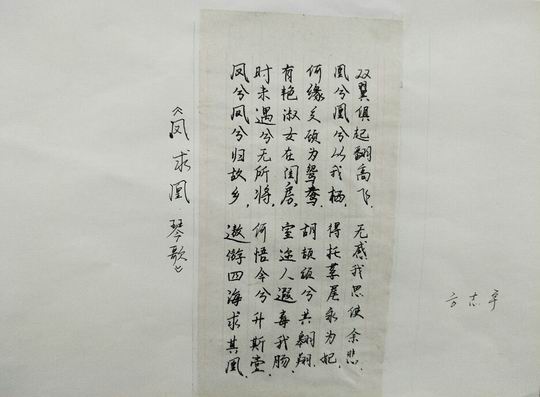 《凤求凰 琴歌》
凤兮凤兮归故乡,遨游四海求其凰.
时未遇兮无所将,何悟今兮升斯堂.
有艳淑女在闺房,室迩人遐毒我肠.
何缘交颈为鸳鸯,胡颉颃兮共翱翔.
凰兮凰兮从我栖,得托孳尾永为妃.
双翼俱起翻高飞,无感我思使余悲.
方志